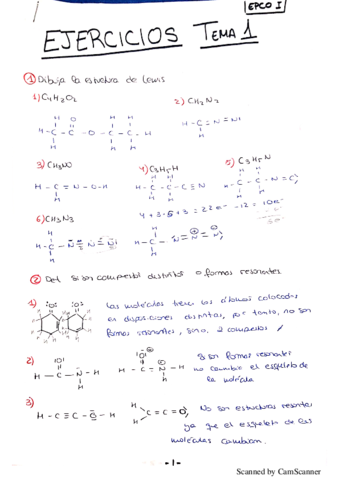 EPCO I
EJERCICIOS TEMA 1
① Dibuja la estructura de Lewis
1) C4H8O2
2) CH2N2
3) CH3NO
4) C3H5N
5) C3H5N
4 + 3·5 + 3 = 22e- -12 = 10e-
6) CH3N3
② Det si son compuestos distintos o formas resonantes
1)
Las moléculas tienen los átomos colocados
en disposiciones distintas, por tanto, no son
formas resonantes, sino 2 compuestos
2)
Si son formas resonantes
no cambia el esqueleto de
la molécula
3)
No son estructuras resonantes
ya que el esqueleto de las
moléculas cambian.
-1-
Scanned by CamScanner